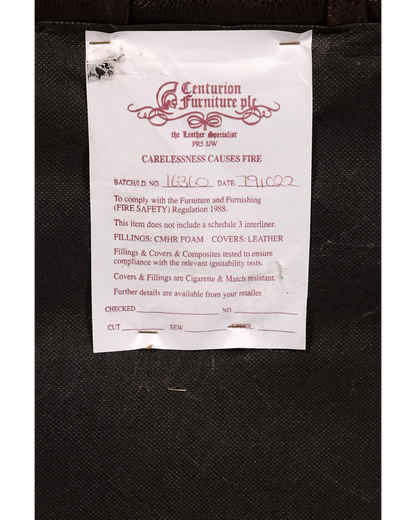 Centurion
Furniture plc
the Leather Specialist
PR5 3JW
CARELESSNESS CAUSES FIRE
BATCH/I.D. NO. 16360 DATE 791022
To comply with the Furniture and Furnishing
(FIRE SAFETY) Regulation 1988.
This item does not include a schedule 3 interliner.
FILLINGS: CMHR FOAM COVERS: LEATHER
Fillings & Covers & Composites tested to ensure
compliance with the relevant ignitability tests.
Covers & Fillings are Cigarette & Match resistant.
Further details are available from your retailer.
CHECKED NO
CUT SEW UPHOL.